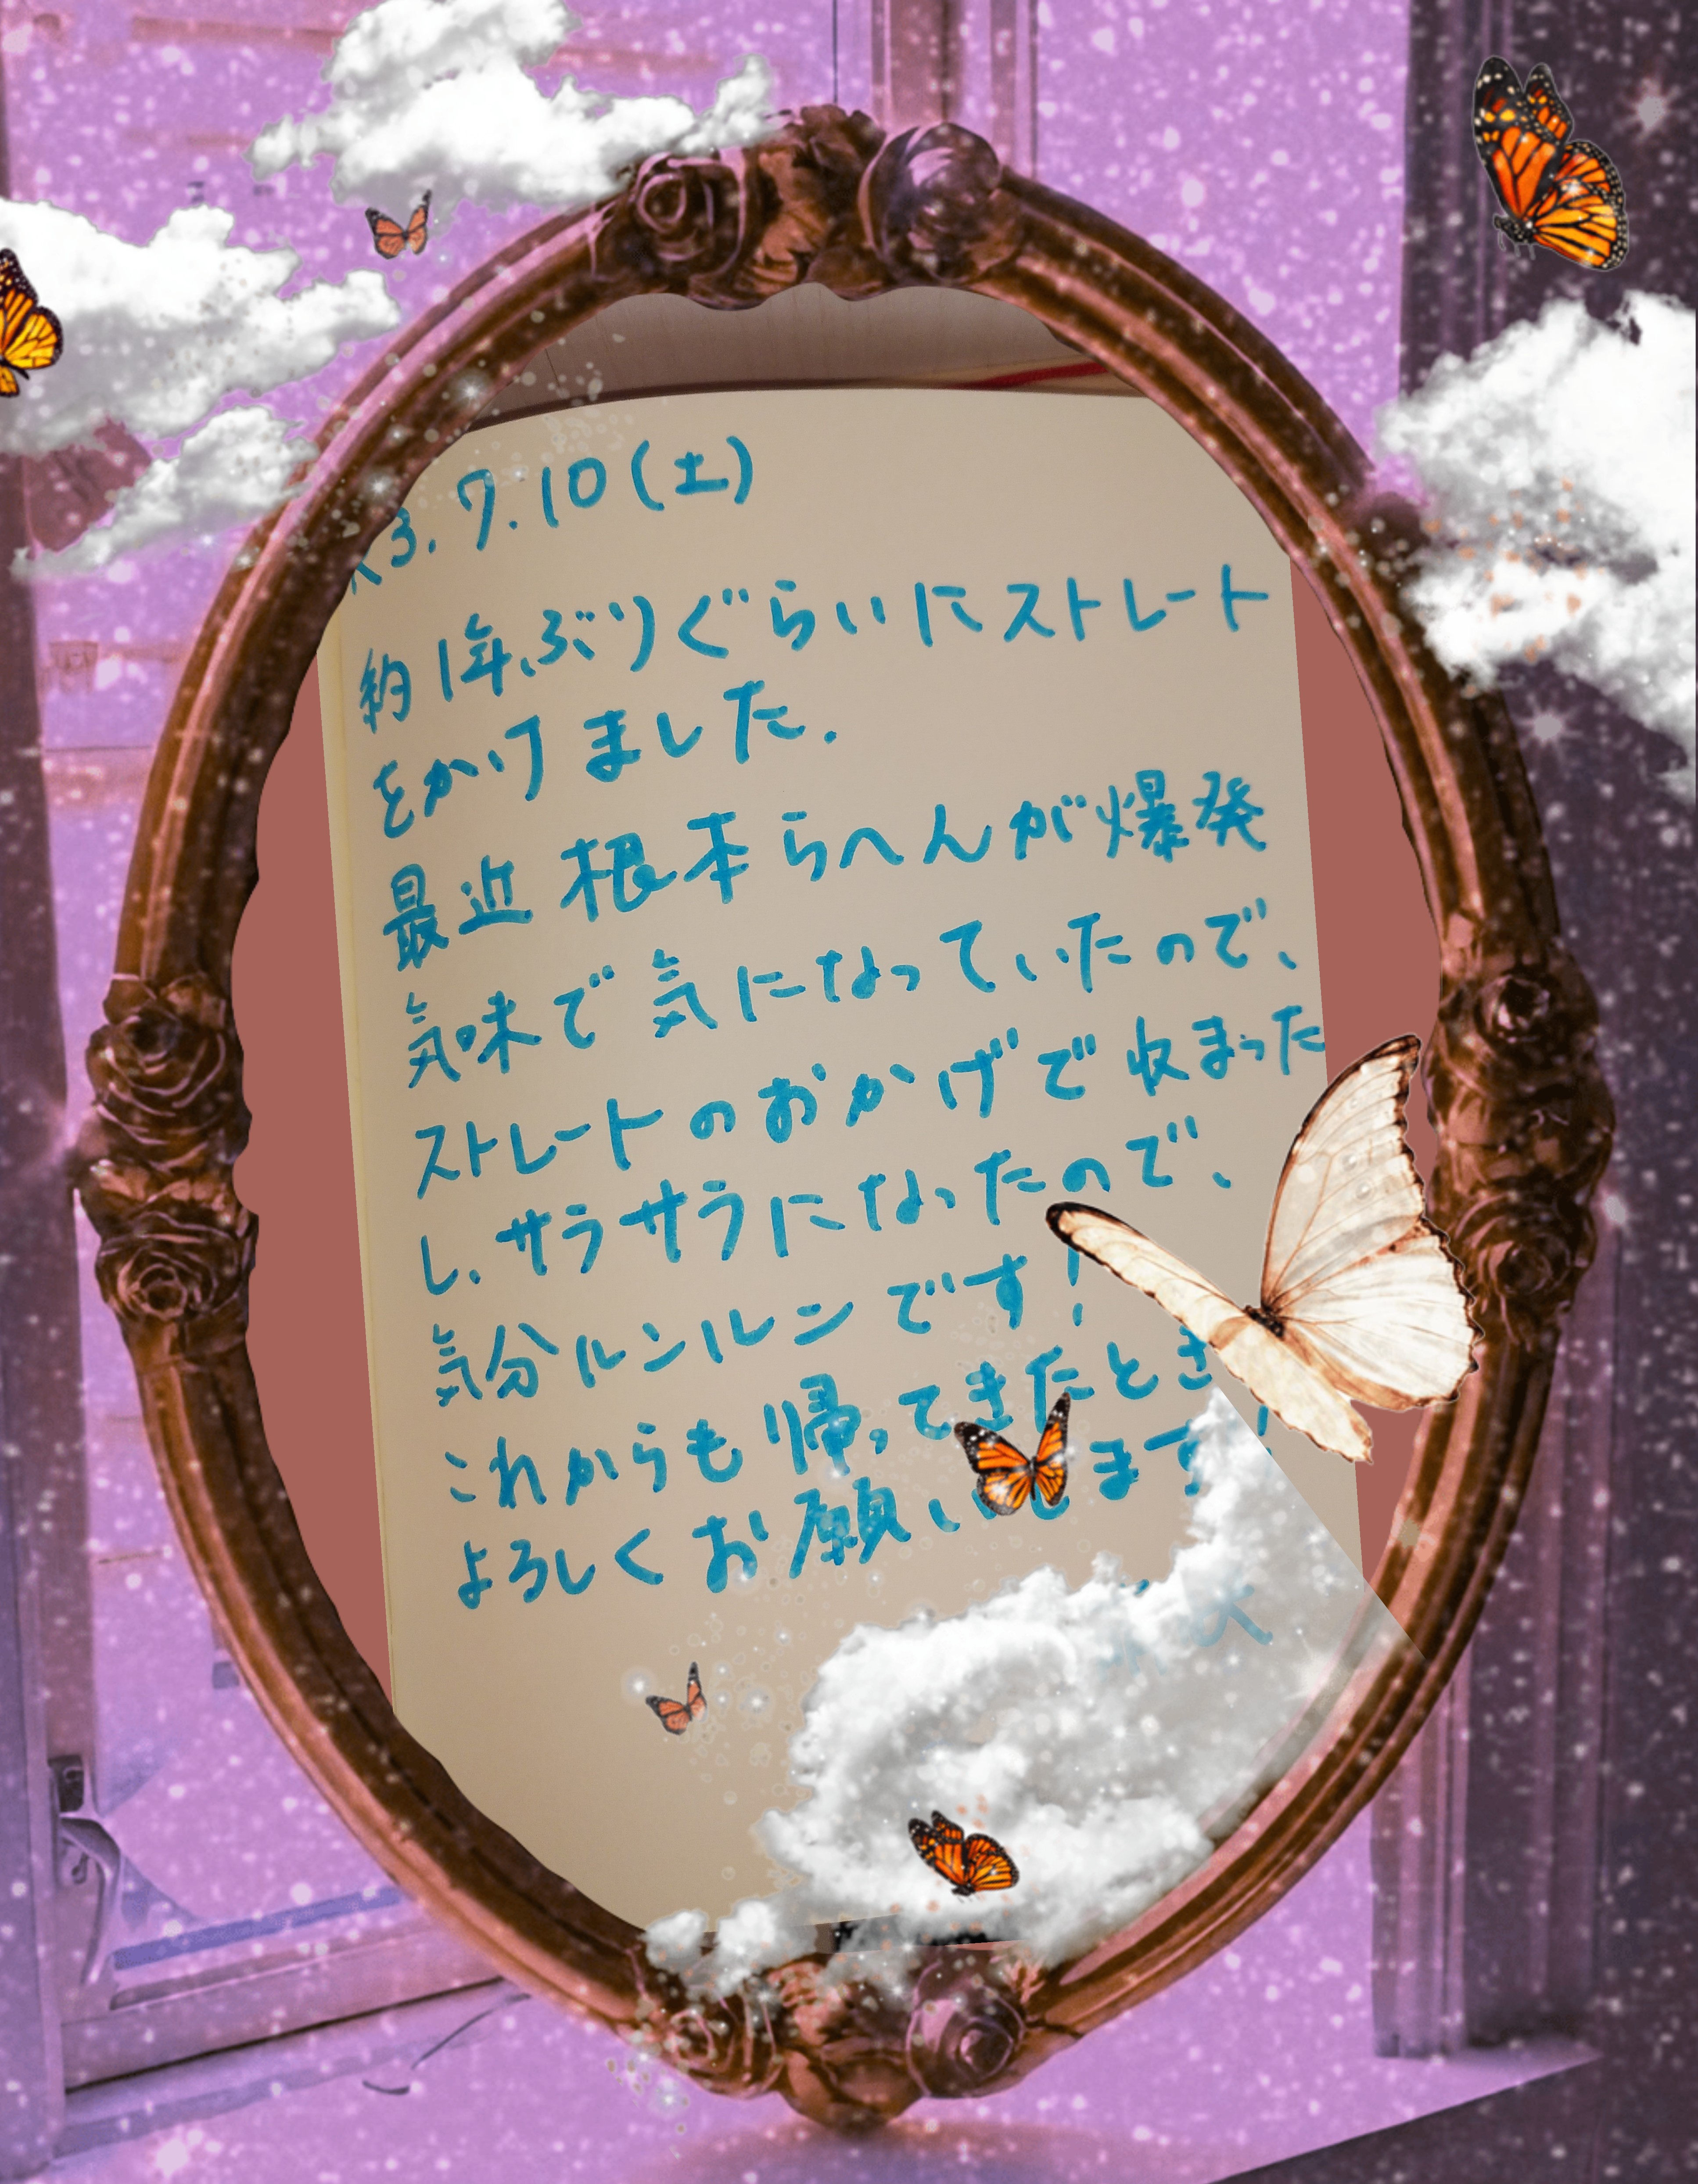 3.7.10(土)
約1年ぶりぐらいにストレート
をかけました.
最近根本らへんが爆発
気味で気になっていたので、
ストレートのおかげで収まった
し、サラサラになったので、
気分ルンルンです!
これからも帰ってきたとき
よろしくお願いします!